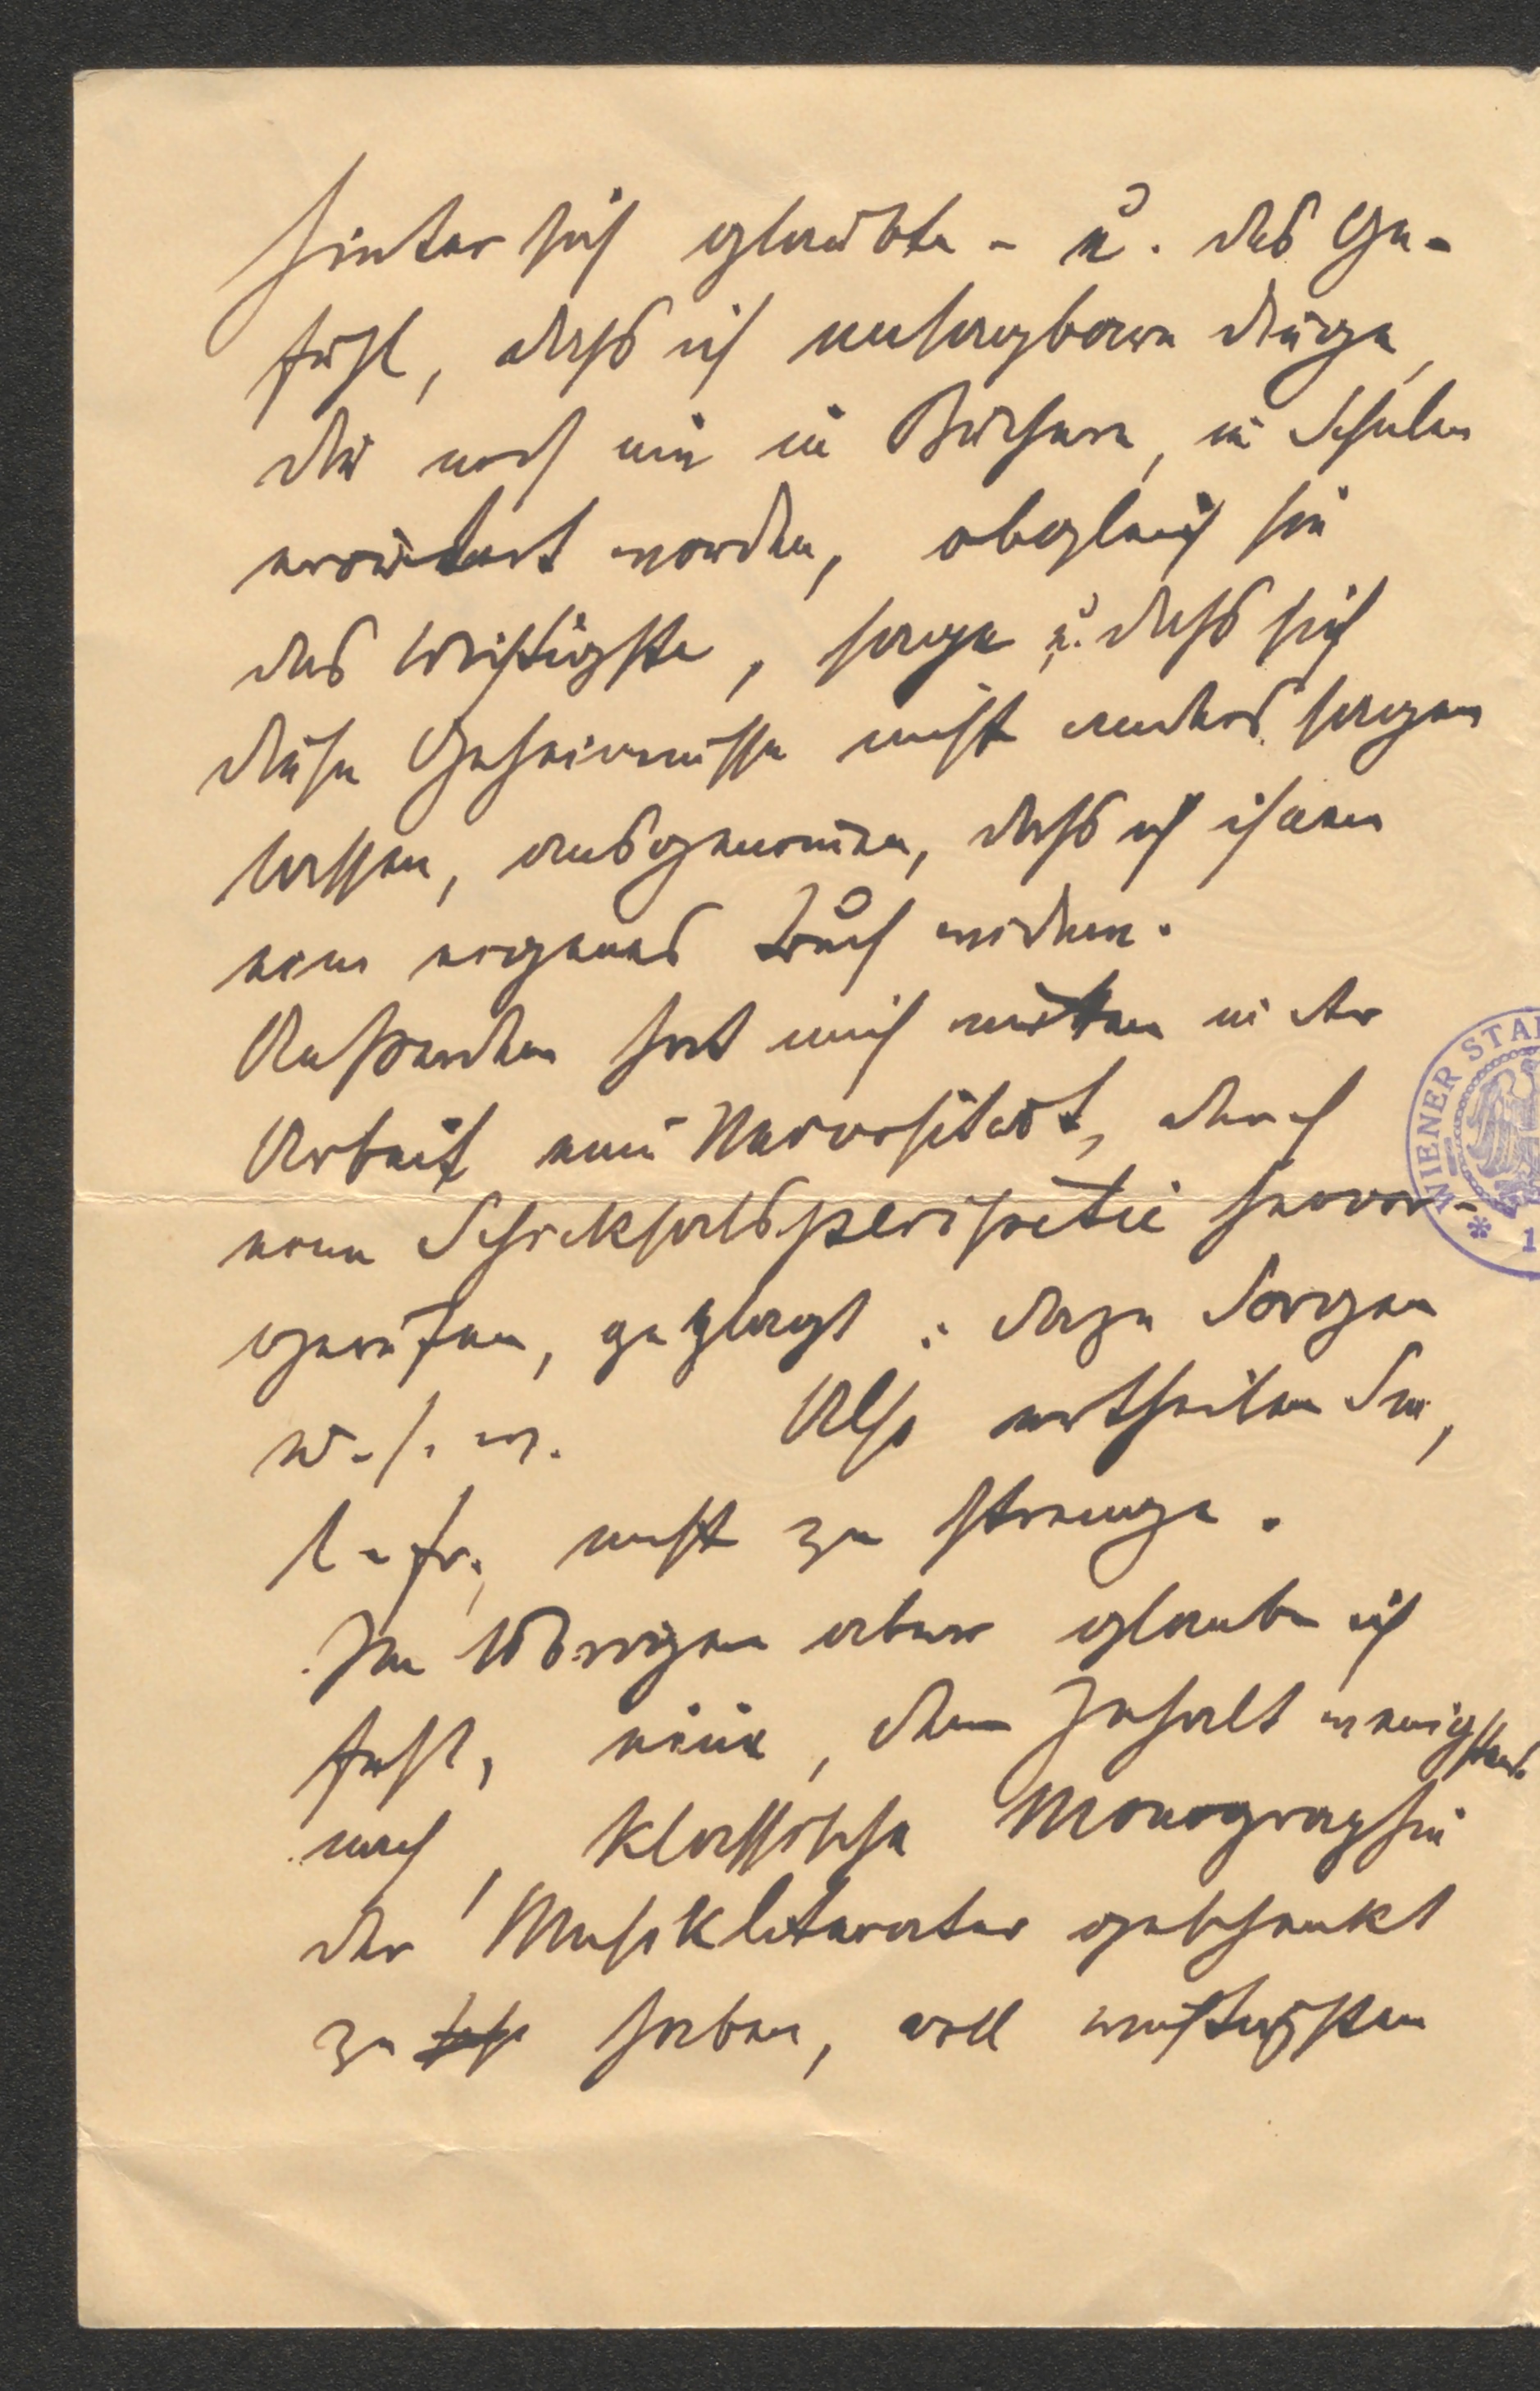 hinter sich glaubte – u. das Ge-
fühl, daß ich unsagbare Dinge,
die noch nie in Büchern, in Schulen
erörtert worden, obgleich sie
das Wichtigste, sage u. daß sich
diese Geheimnisse nicht anders sagen
lassen, ausgenommen, daß ich ihnen
ein eigenes Buch widme.
Außerdem hat mich mitten in der
Arbeit eine Nervosität, durch
eine Schicksalsperipetie hervor-
gerufen, geplagt; dazu Sorgen
u. s. w. Also urtheilen Sie,
l. Fr., nicht zu strenge.
Im Übrigen aber glaube ich
fest, eine, dem Inhalt wenigstens
nach, klassische Monographie
der Musikliteratur geschenkt
zu haben, voll wichtigsten
WIENER STA
* 1